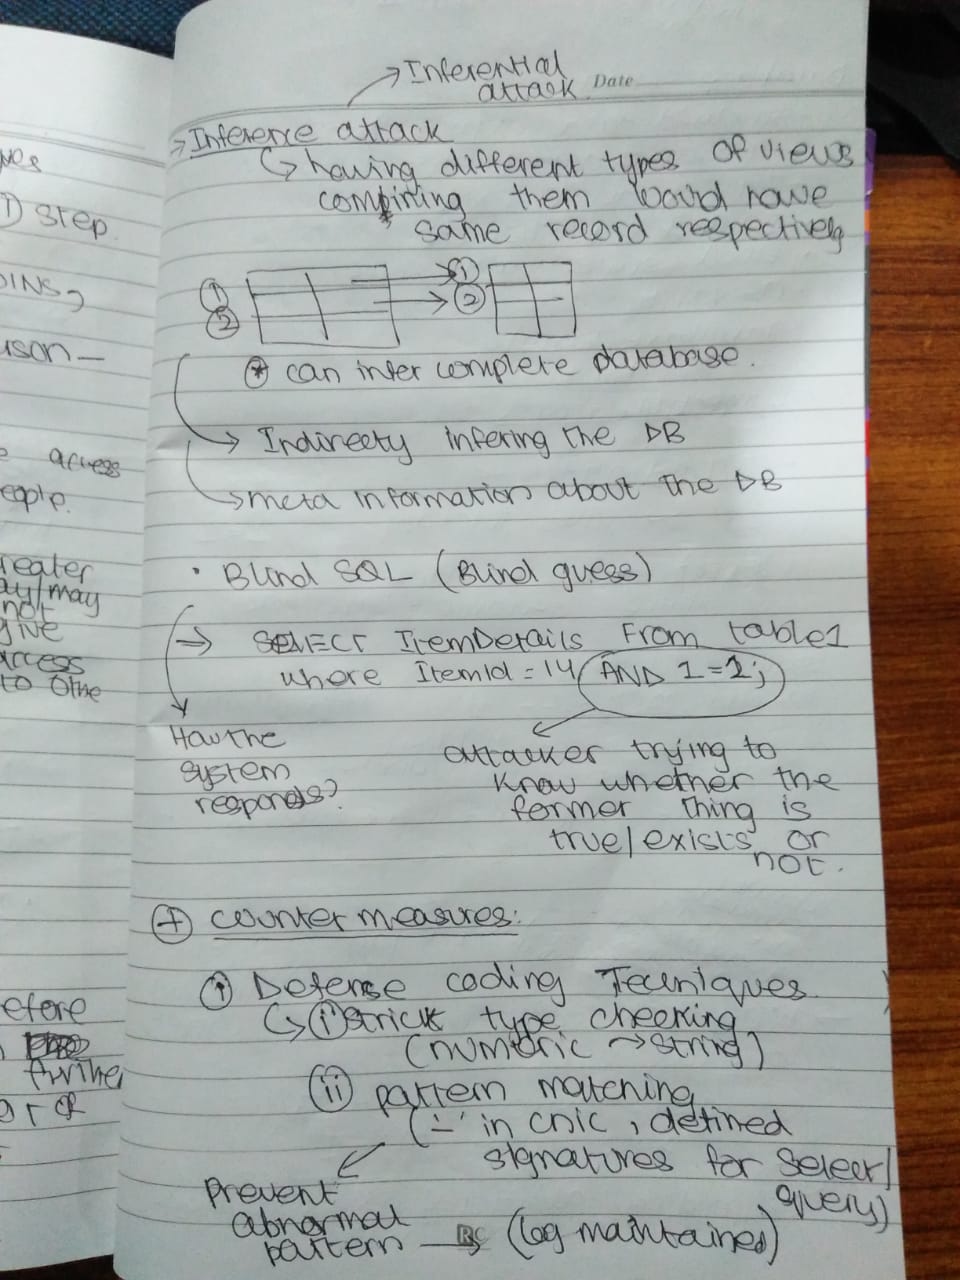 ves
1) step
OINS,
ison -
e access
eople.
reater
ay/may
not
give
access
to othe
efore
further
or of
→ Inferential
attack Date
→ Inference attack
↳ having different types of views
combining them would have
same record respectively
① ①
② ②
* can infer complete database.
→ Indirecty infering the DB
→ meta information about the DB
• Blind SQL (Blind guess)
→ SELECT ItemDetails From table1
where ItemId = 14 AND 1=1;
How the
system
responds?
attacker trying to
know whether the
former thing is
true/exists or
not.
+ counter measures:
① Defense coding Techniques
↳ ① strick type checking
(numeric → string)
(ii) pattern matching
('-' in cnic, defined
signatures for select/
query)
Prevent
abnormal
pattern → (log maintained)
RC